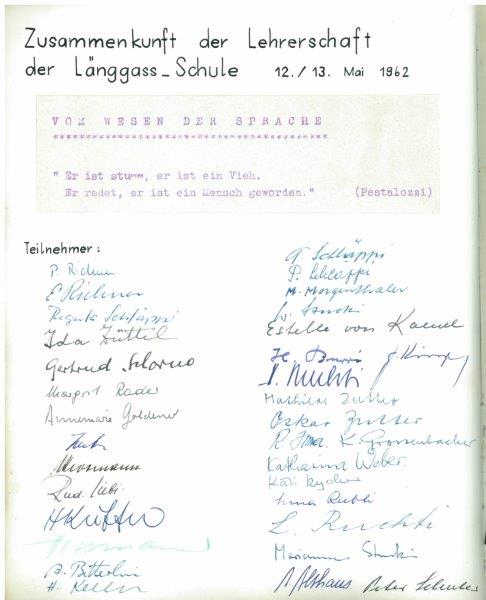 Zusammenkunft der Lehrerschaft
der Länggass-Schule 12./13. Mai 1962
VOM WESEN DER SPRACHE
" Er ist stumm, er ist ein Vieh.
Er redet, er ist ein Mensch geworden." (Pestalozzi)
Teilnehmer:
P. Richner
E. Richner
Regula Schläppi
Ida Züttel
Gertrud
Margrit Rader
Annemarie Goldener
Rud. Liebi
H. Küffer
B. Bitterlin
H. Keller
Schläppi
P. Schläppi
M. Morgenthaler
Estelle von Kaenel
Mathilde Zutter
Oskar Zutter
K. Grossenbacher
Katharina Weber.
Käti Rycher
Irma Rubli
L. Ruchti
Marianne
Althaus Peter Schuler